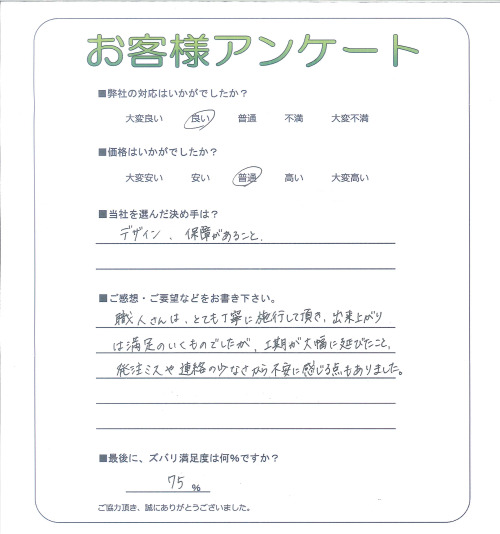 お客様アンケート
■弊社の対応はいかがでしたか？
大変良い 良い 普通 不満 大変不満
■価格はいかがでしたか？
大変安い 安い 普通 高い 大変高い
■当社を選んだ決め手は？
デザイン、保障があること.
■ご感想・ご要望などをお書き下さい。
職人さんは、とても丁寧に施行して頂き、出来上がり
は満足のいくものでしたが、工期が大幅に延びたこと、
発注ミスや連絡の少なさから不安に感じる点もありました。
■最後に、ズバリ満足度は何%ですか？
75 %
ご協力頂き、誠にありがとうございました。